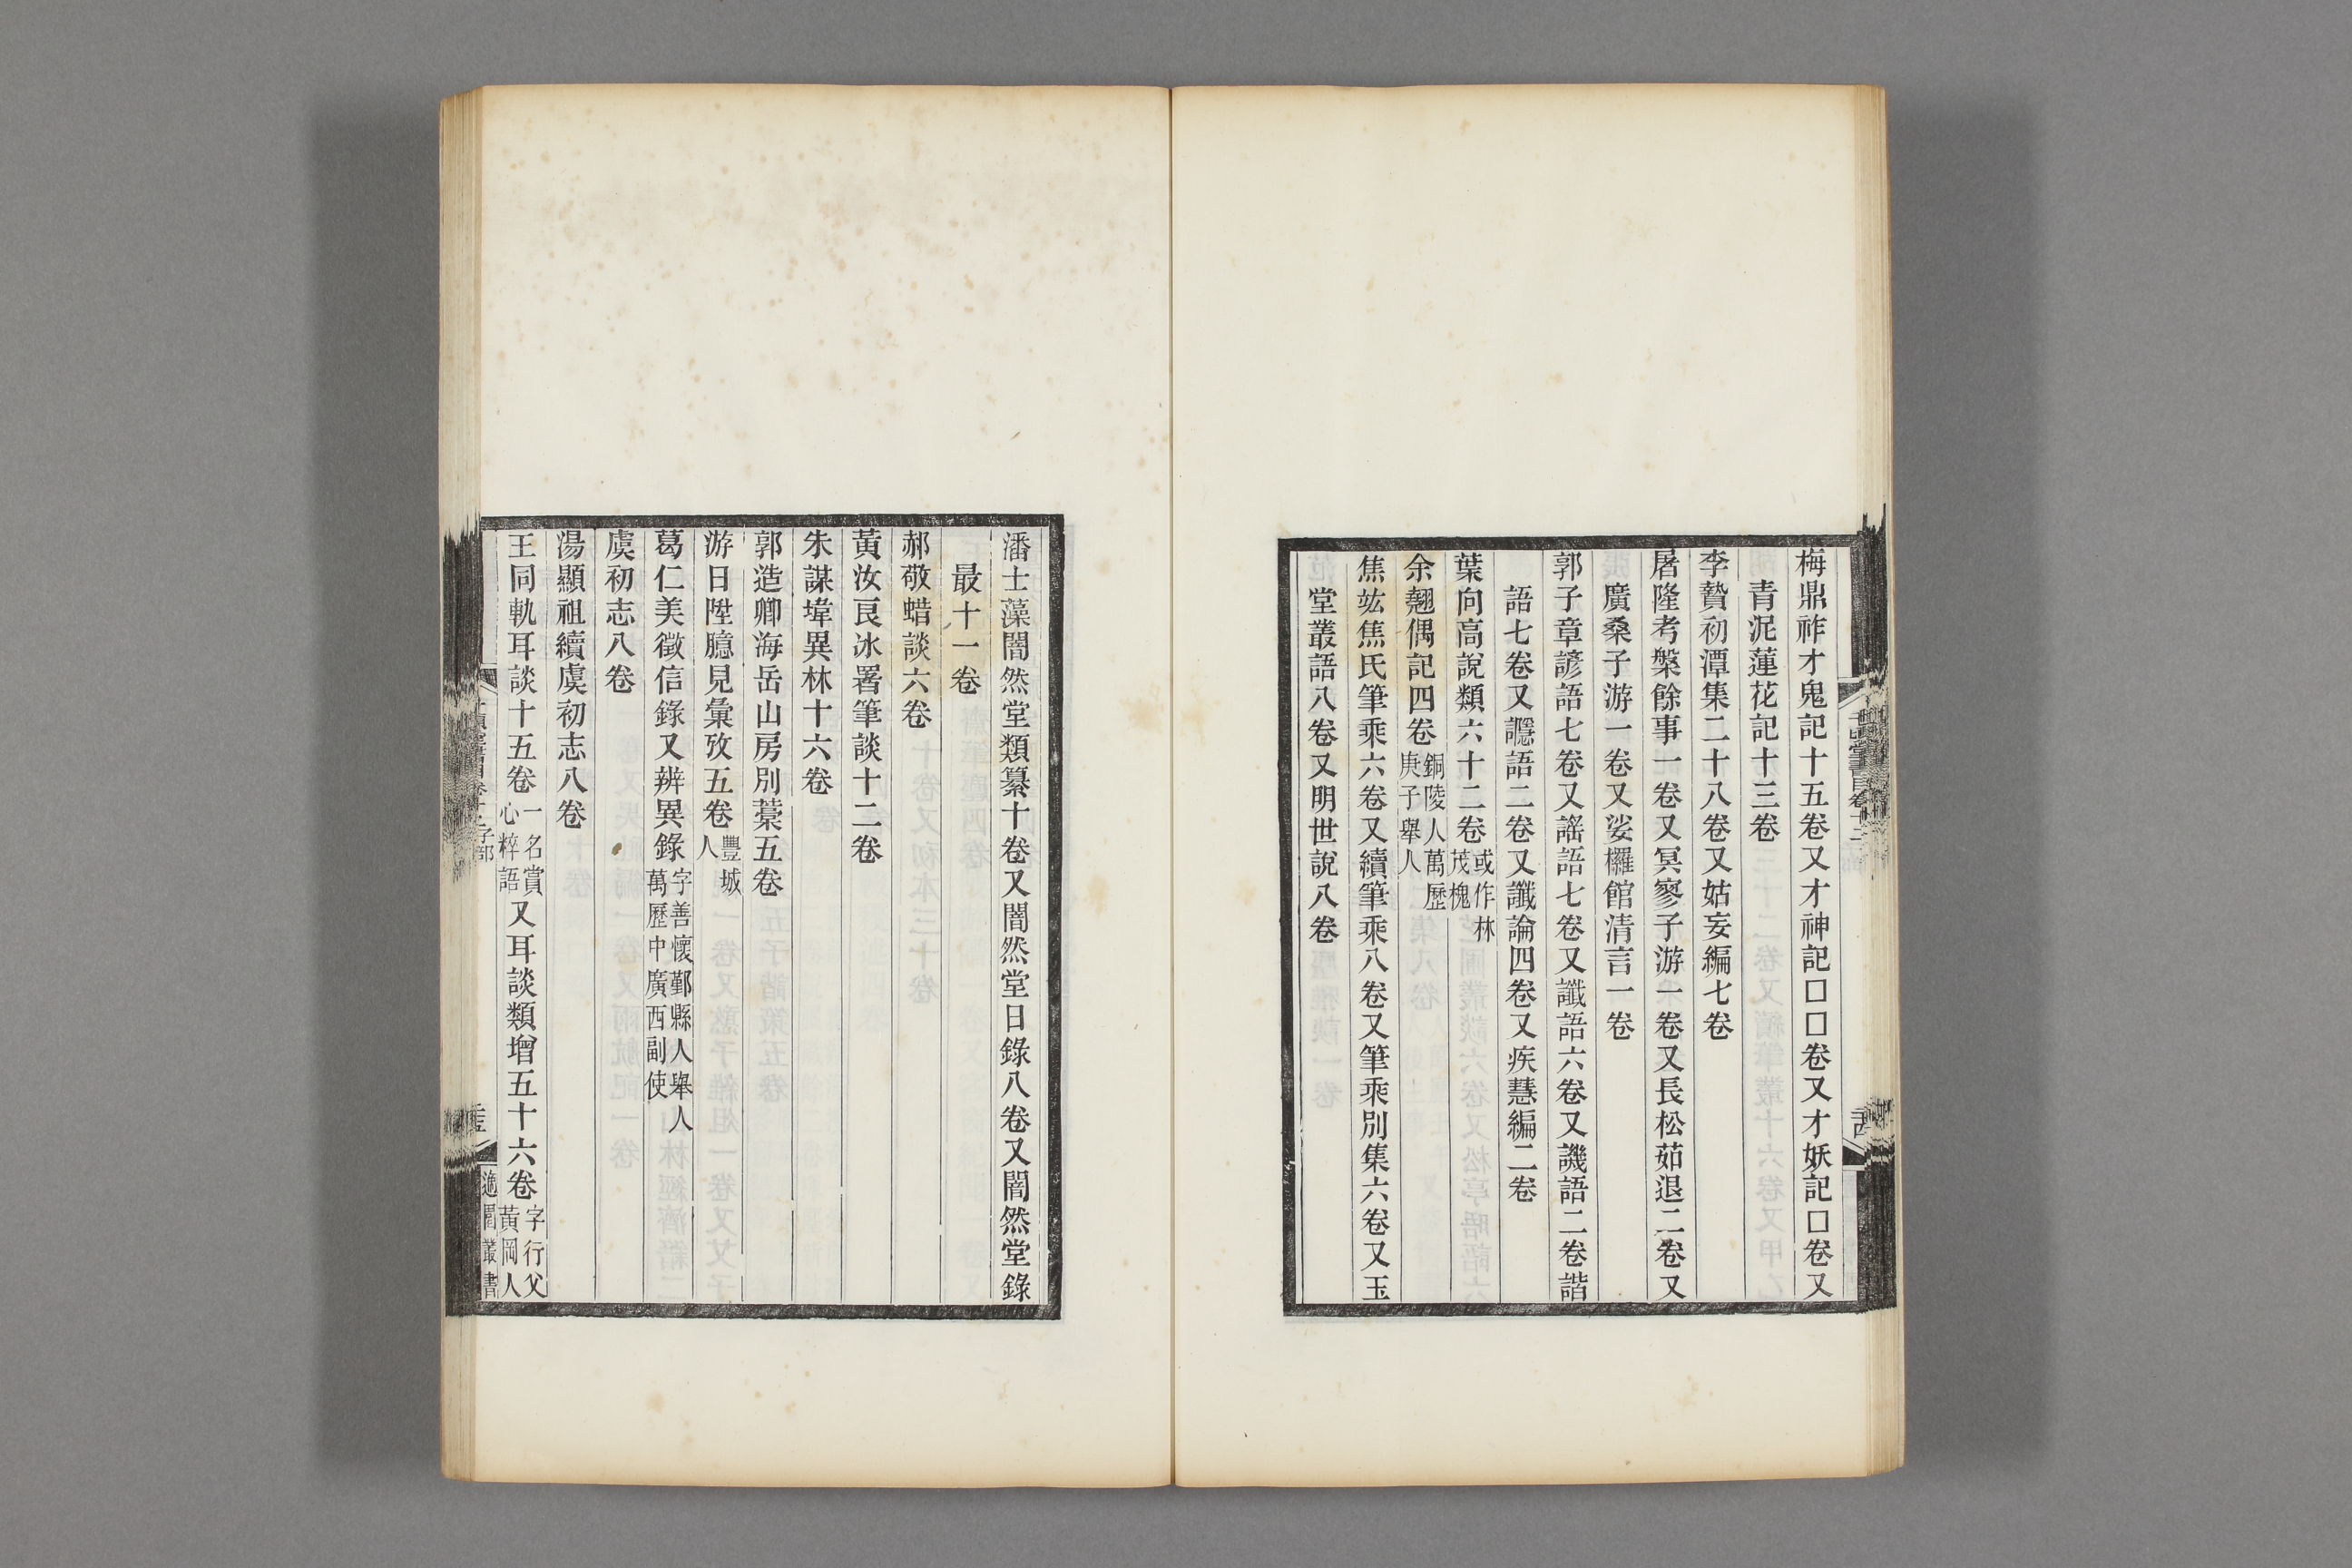 梅鼎祚才鬼記十五卷又才神記口口卷又才妖記口卷又
青泥蓮花記十三卷
李贄初潭集二十八卷又姑妄編七卷
屠隆考槃餘事一卷又冥寥子游一卷又長松茹退二卷又
廣桑子游一卷又娑欏館清言一卷
郭子章諺語七卷又謠語七卷又讖語六卷又譏語二卷諧
語七卷又讔語二卷又讖論四卷又疾慧編二卷
葉向高說類六十二卷或作林茂槐
余翹偶記四卷銅陵人萬歷庚子舉人
焦竑焦氏筆乘六卷又續筆乘八卷又筆乘別集六卷又玉
堂叢語八卷又明世說八卷
潘士藻闇然堂類纂十卷又闇然堂日錄八卷又闇然堂錄
最十一卷
郝敬蜡談六卷
黃汝良冰署筆談十二卷
朱謀㙔異林十六卷
郭造卿海岳山房別藁五卷
游日陞臆見彙攷五卷豐城人
葛仁美徵信錄又辨異錄字善懷鄞縣人舉人萬歷中廣西副使
虞初志八卷
湯顯祖續虞初志八卷
王同軌耳談十五卷一名賞心粹語又耳談類增五十六卷字行父黃岡人
適園叢書